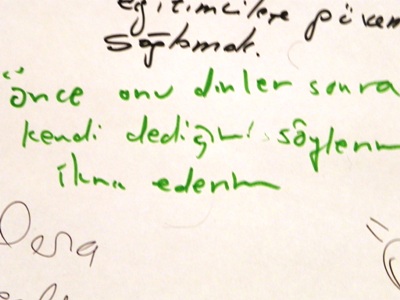 eğitimcilere güven
sağlamak.
önce onu dinler sonra
kendi dediğimi söylerim
ikna ederim